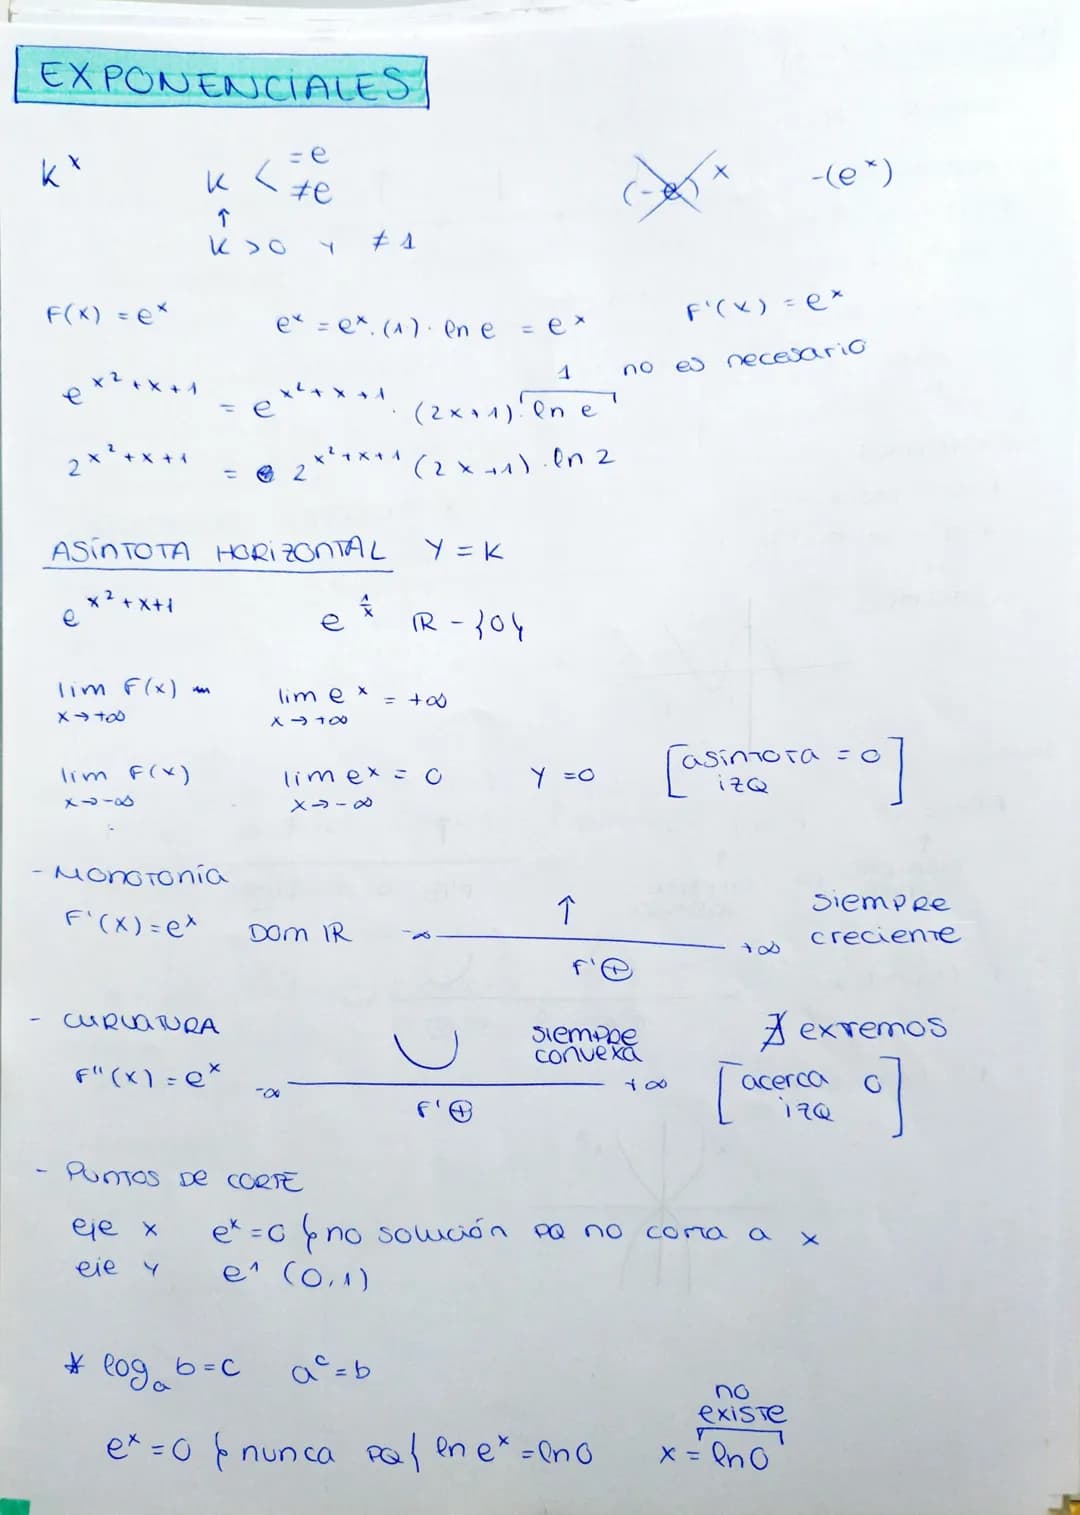 EXPONENCIALES
k^x   k < = e   (-e)^x   -(e^x)
≠ e
↑
k > 0 y ≠ 1
F(x) = e^x   e^x = e^x · (1) · ln e = e^x   F'(x) = e^x
1 no es necesario
e^{x²+x+1} = e^{x²+x+1} · (2x+1) · ln e
2^{x²+x+1} = 2^{x²+x+1} (2x+1) · ln 2
ASÍNTOTA HORIZONTAL Y = K
e^{x²+x+1}   e^{1/x}   ℝ - {0}
lim F(x)   lim e^x = +∞
x→+∞   x→+∞
lim F(x)   lim e^x = 0   Y = 0   [asíntota = 0
x→-∞   x→-∞   izq]
- Monotonía
F'(x) = e^x   Dom ℝ   -∞   ↑   +∞   siempre
F' ⊕   creciente
- CURVATURA   ∪   siempre   ∄ extremos
convexa
F''(x) = e^x   -∞   +∞   [acerca 0
F' ⊕   izq]
- PUNTOS DE CORTE
eje x   e^x = 0 } no solución pq no corta a x
eje y   e^1 (0,1)
* log_a b = c   a^c = b
no
existe
e^x = 0 } nunca pq { ln e^x = ln 0   x = ln 0